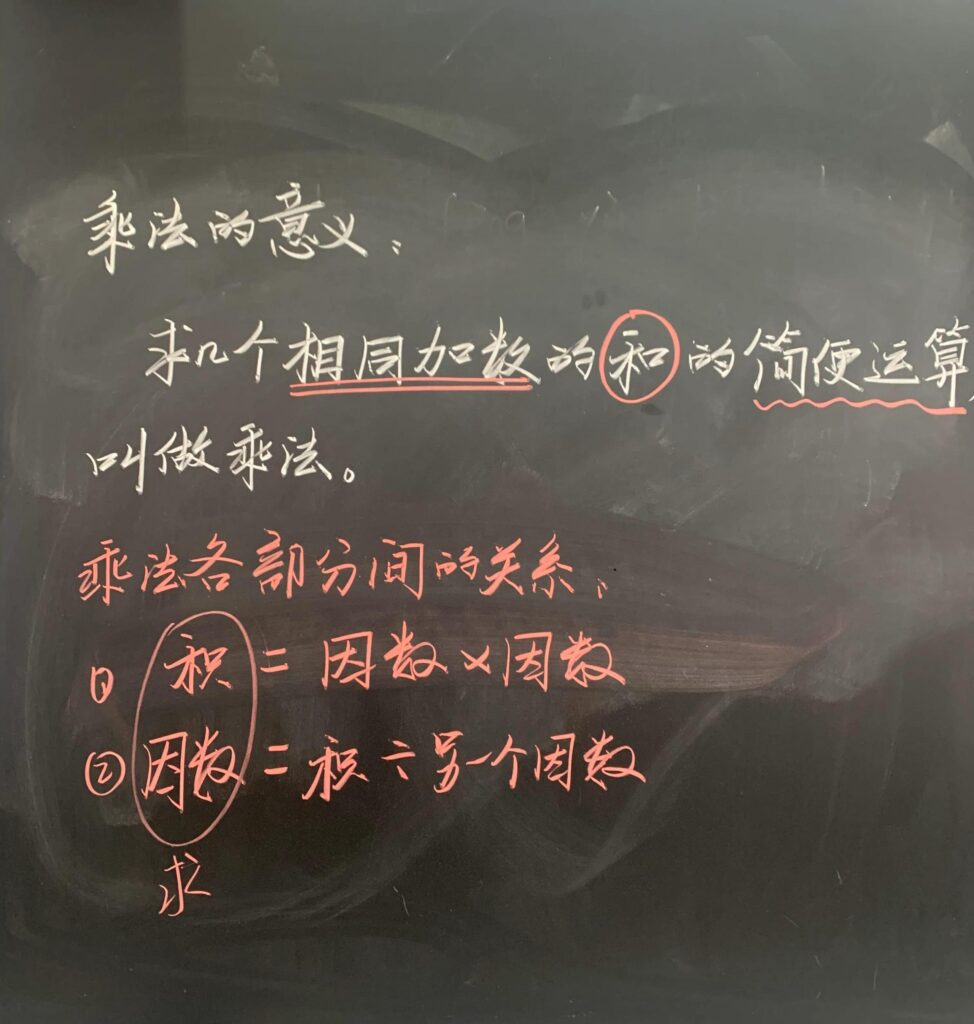 乘法的意义：
求几个相同加数的和的简便运算，
叫做乘法。
乘法各部分间的关系：
① 积 = 因数×因数
② 因数 = 积÷另一个因数
求